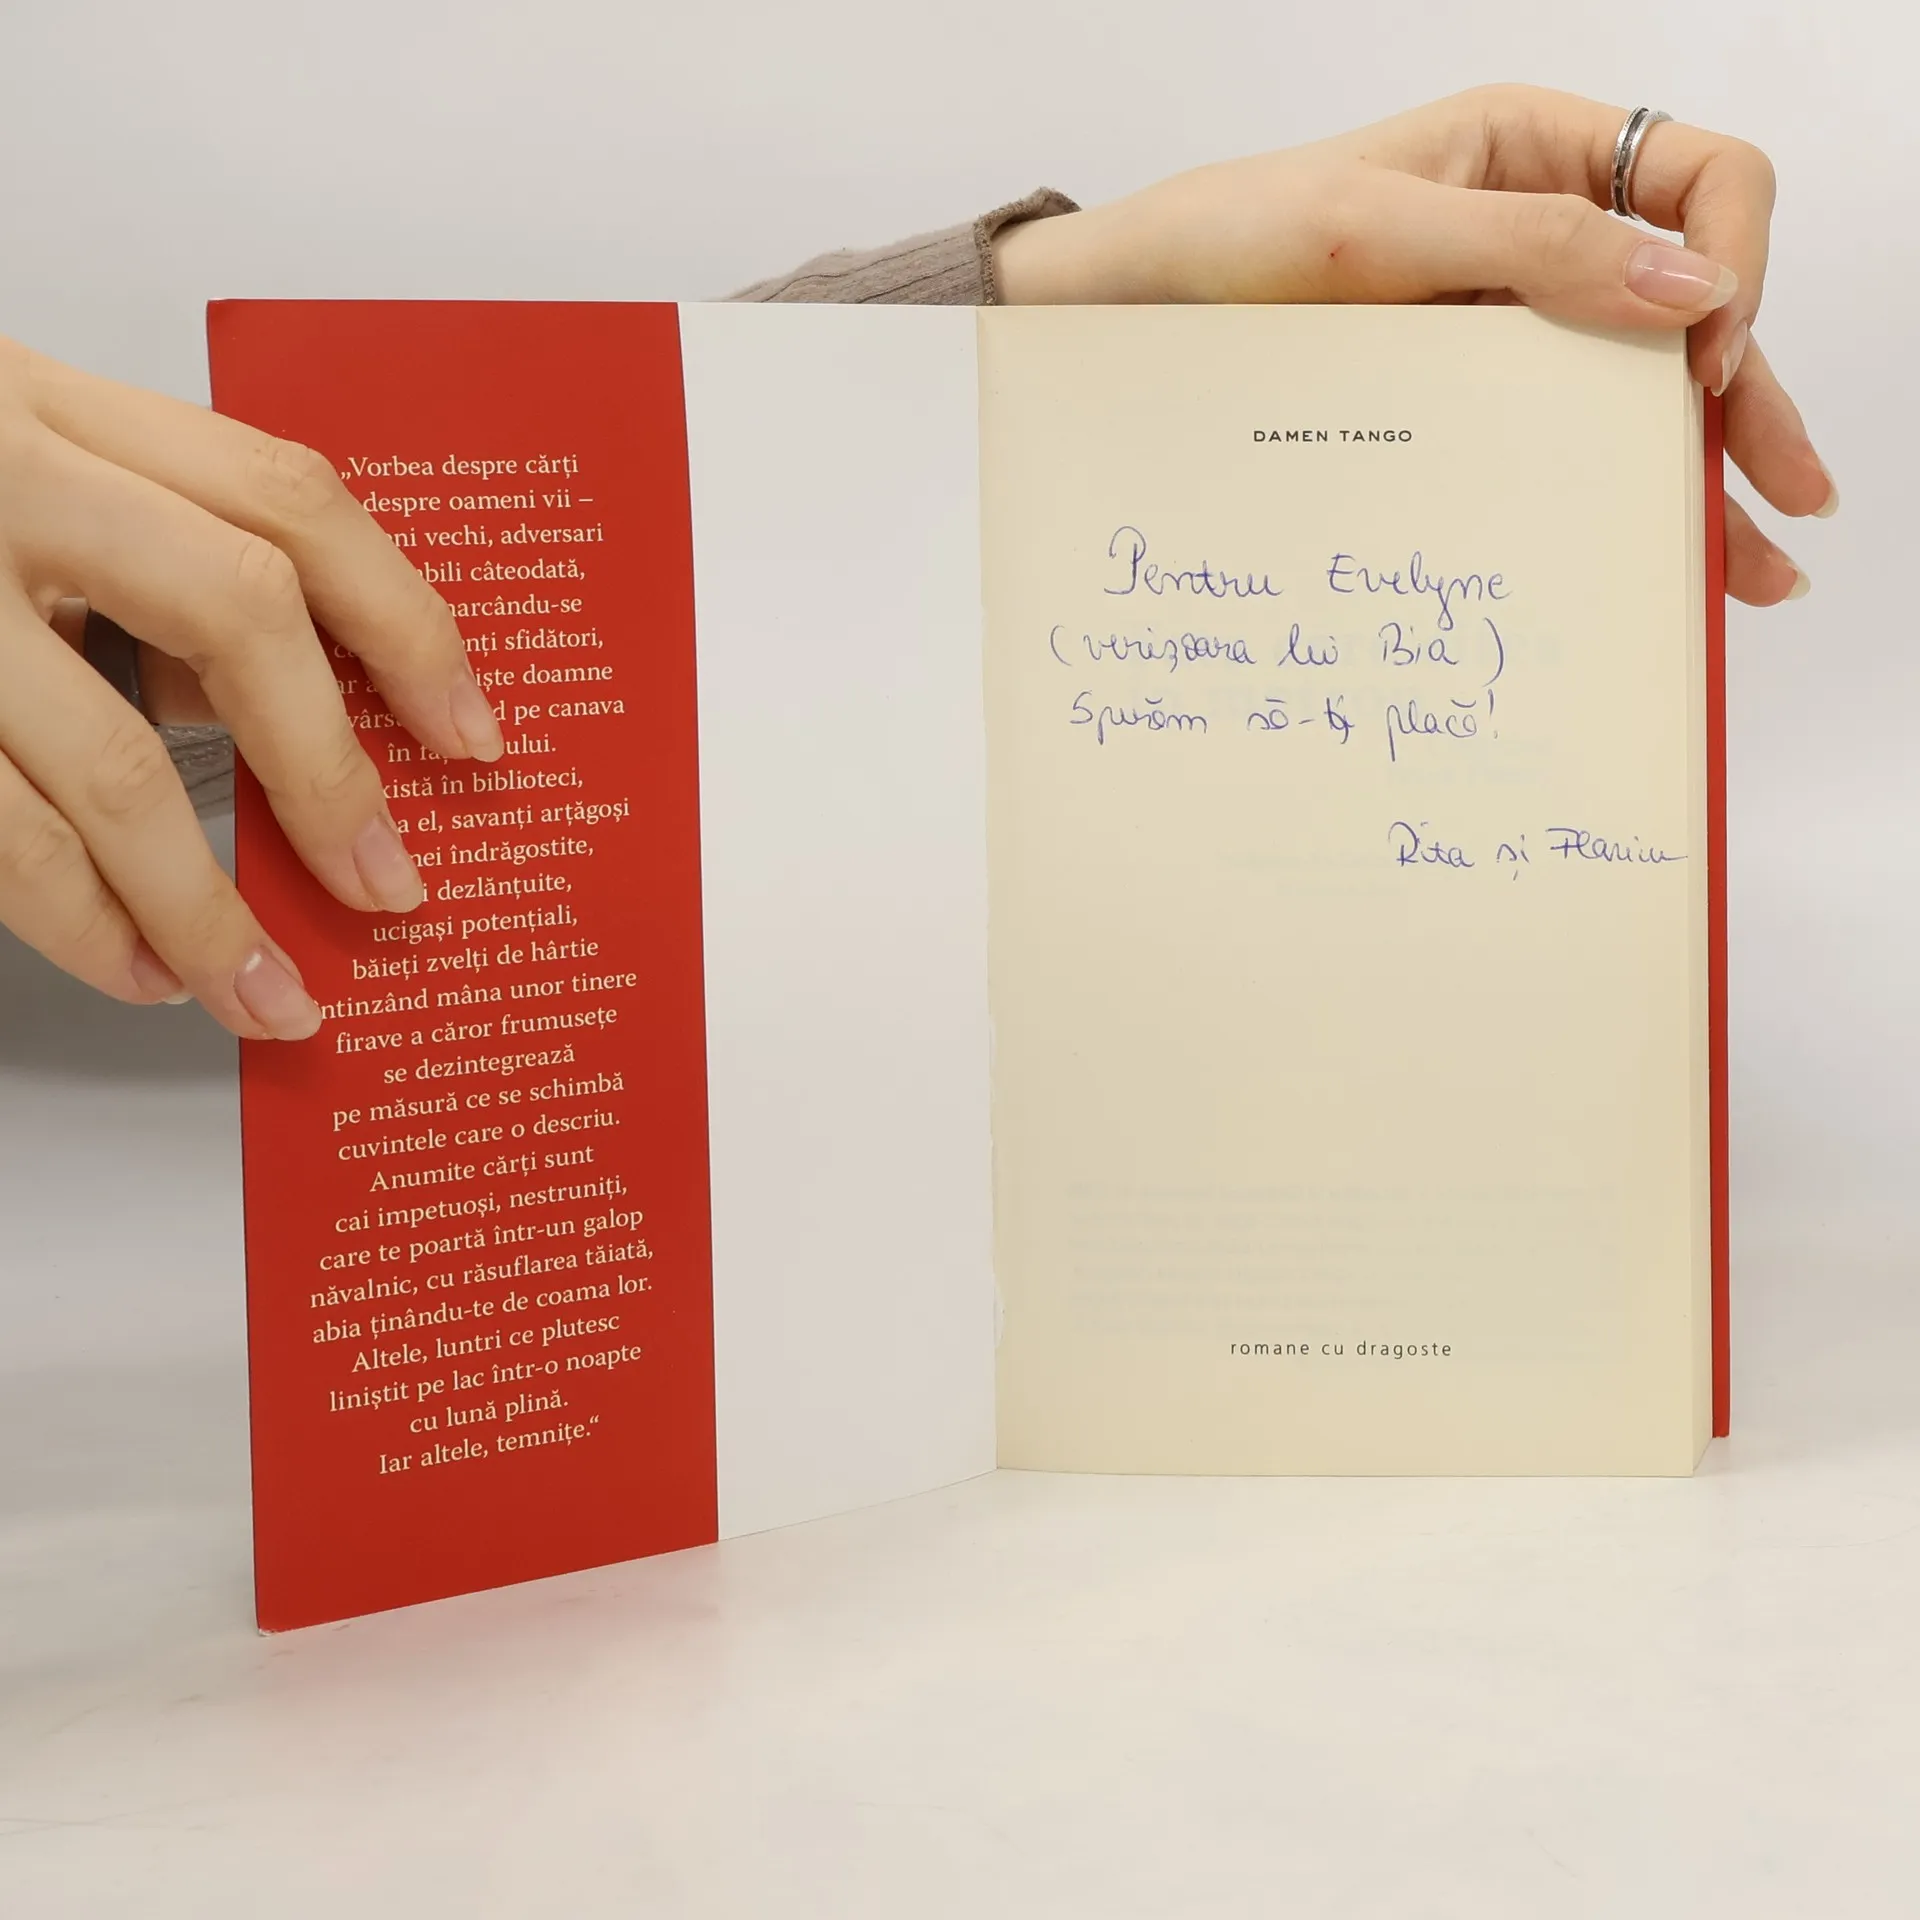 „Vorbea despre cărți
despre oameni vii –
vechi, adversari
câteodată,
sfidători,
doamne
pe canava
în
în biblioteci,
el, savanți arțăgoși
îndrăgostite,
dezlănțuite,
ucigași potențiali,
băieți zvelți de hârtie
întinzând mâna unor tinere
firave a căror frumusețe
se dezintegrează
pe măsură ce se schimbă
cuvintele care o descriu.
Anumite cărți sunt
cai impetuoși, nestruniți,
care te poartă într-un galop
năvalnic, cu răsuflarea tăiată,
abia ținându-te de coama lor.
Altele, luntri ce plutesc
liniștit pe lac într-o noapte
cu lună plină.
Iar altele, temnițe.“
DAMEN TANGO
Pentru Evelyne
(verișoara lui Bia)
Sperăm să-ți placă!
Rita și Flaviu
romane cu dragoste